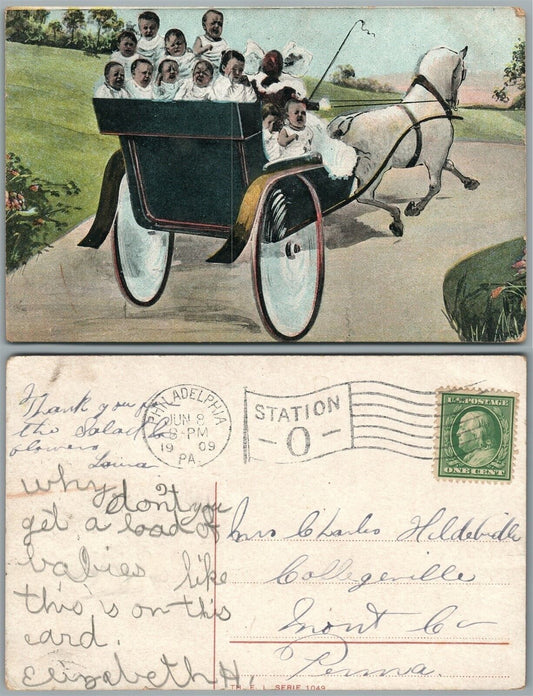 Thank you for
the Salad &
flowers
Louisa
why don't you
get a load of
babies like
this is on this
card.
Elizabeth H.
PHILADELPHIA
JUN 8
8-PM
1909
PA.
STATION
-O-
U.S. POSTAGE
ONE CENT
Mrs Charles
Collegeville
Mont Co
Penna.
TH. E. L. SERIE 1049